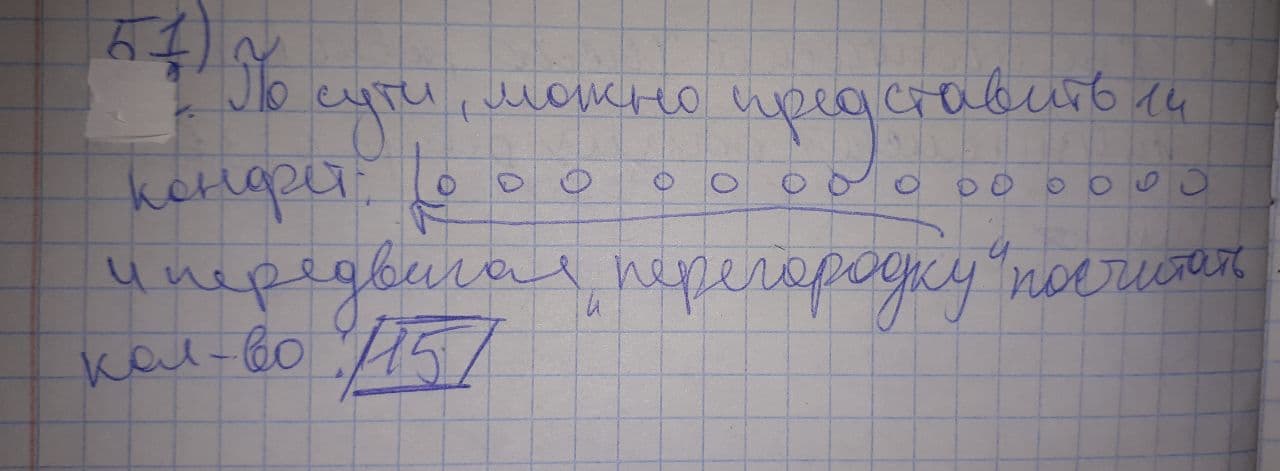 51)
По сути, можно представить 14
конфет: |o o o o o o o o o o o o o o
и передвигая „перегородку“ посчитать
кол-во : 15